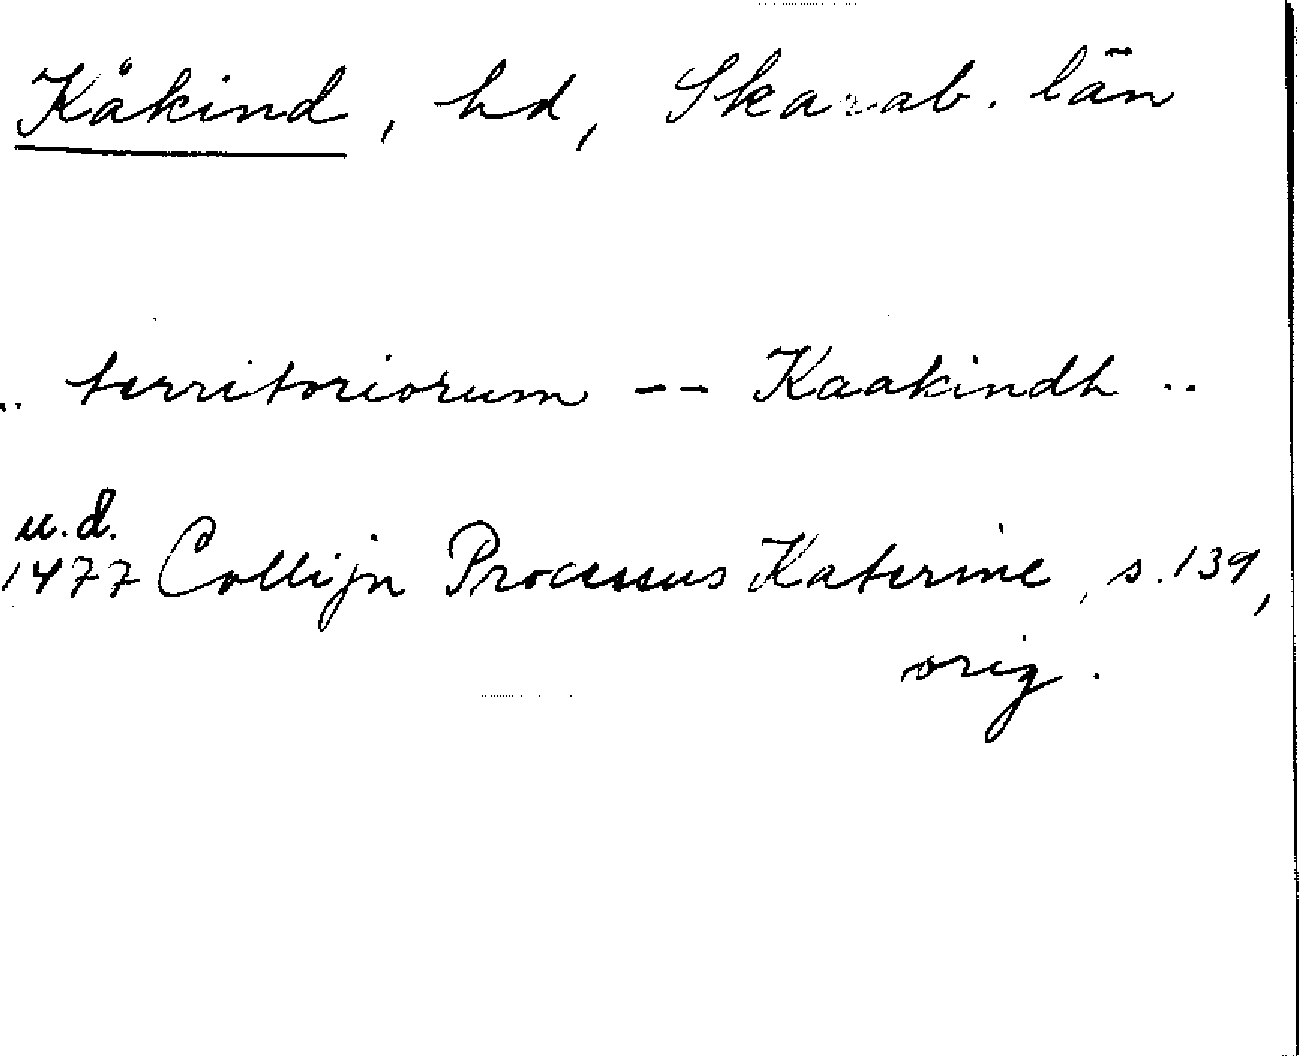 Kåkind, hd, Skarab. län
.. territoriorum -- Kaakindh ..
u.d.
1477 Collijn Processus Katerine, s. 139,
orig.